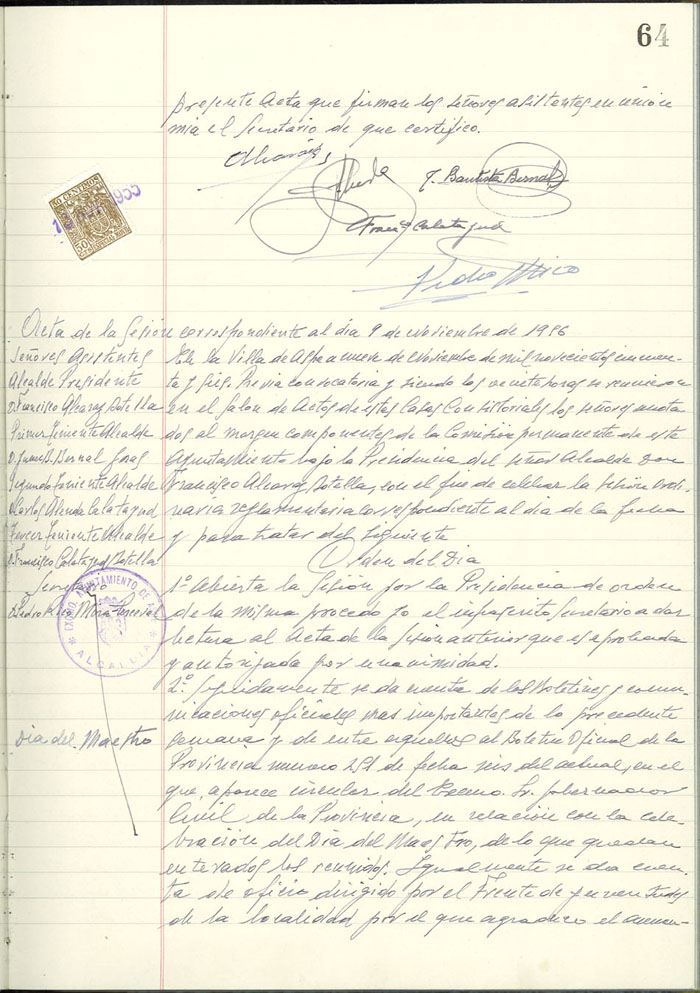 64
presente Acta que firman los señores asistentes en unión
mía el Secretario de que certifico.
J. Bautista Bernal
Franco Calatayud
Pedro Mico
50 CENTIMOS
1955
Acta de la Sesión correspondiente al día 9 de Noviembre de 1956
Señores Asistentes
Alcalde Presidente
D. Francisco Alcaraz Botella
Primer Teniente Alcalde
D. Juan B. Bernal
Segundo Teniente Alcalde
Carlos Calatayud
Tercer Teniente Alcalde
D. Francisco Calatayud Botella
D. Pedro
EXCMO. AYUNTAMIENTO DE
ALCALDIA
Día del Maestro
En la Villa de Aspe a nueve de Noviembre de mil novecientos cincuen-
ta y seis. Previa convocatoria y siendo las veinte horas se reunieron
en el Salon de Actos de estas Casas Consistoriales los señores anota-
dos al margen componentes de la Comisión permanente de este
Ayuntamiento bajo la Presidencia del señor Alcalde Don
Francisco Alcaraz Botella, con el fin de celebrar la sesión Ordi-
naria reglamentaria correspondiente al día de la fecha
y para tratar del siguiente
Orden del Dia
1º Abierta la Sesión por la Presidencia de orden
de la misma procedo yo el infrascrito Secretario a dar
lectura al Acta de la Sesion anterior que es aprobada
y autorizada por unanimidad.
2º. Seguidamente se da cuenta de los Boletines y comu-
nicaciones oficiales mas importantes de la precedente
semana y de entre aquellos al Boletin Oficial de la
Provincia numero 251 de fecha seis del actual, en el
que aparece circular del Excmo. Sr. Gobernador
Civil de la Provincia, en relacion con la cele-
bración del Dia del Maestro, de lo que quedan
enterados los reunidos. Igualmente se da cuen-
ta de oficio dirigido por el Frente de Juventudes
de la localidad por el que agradece el aumen-